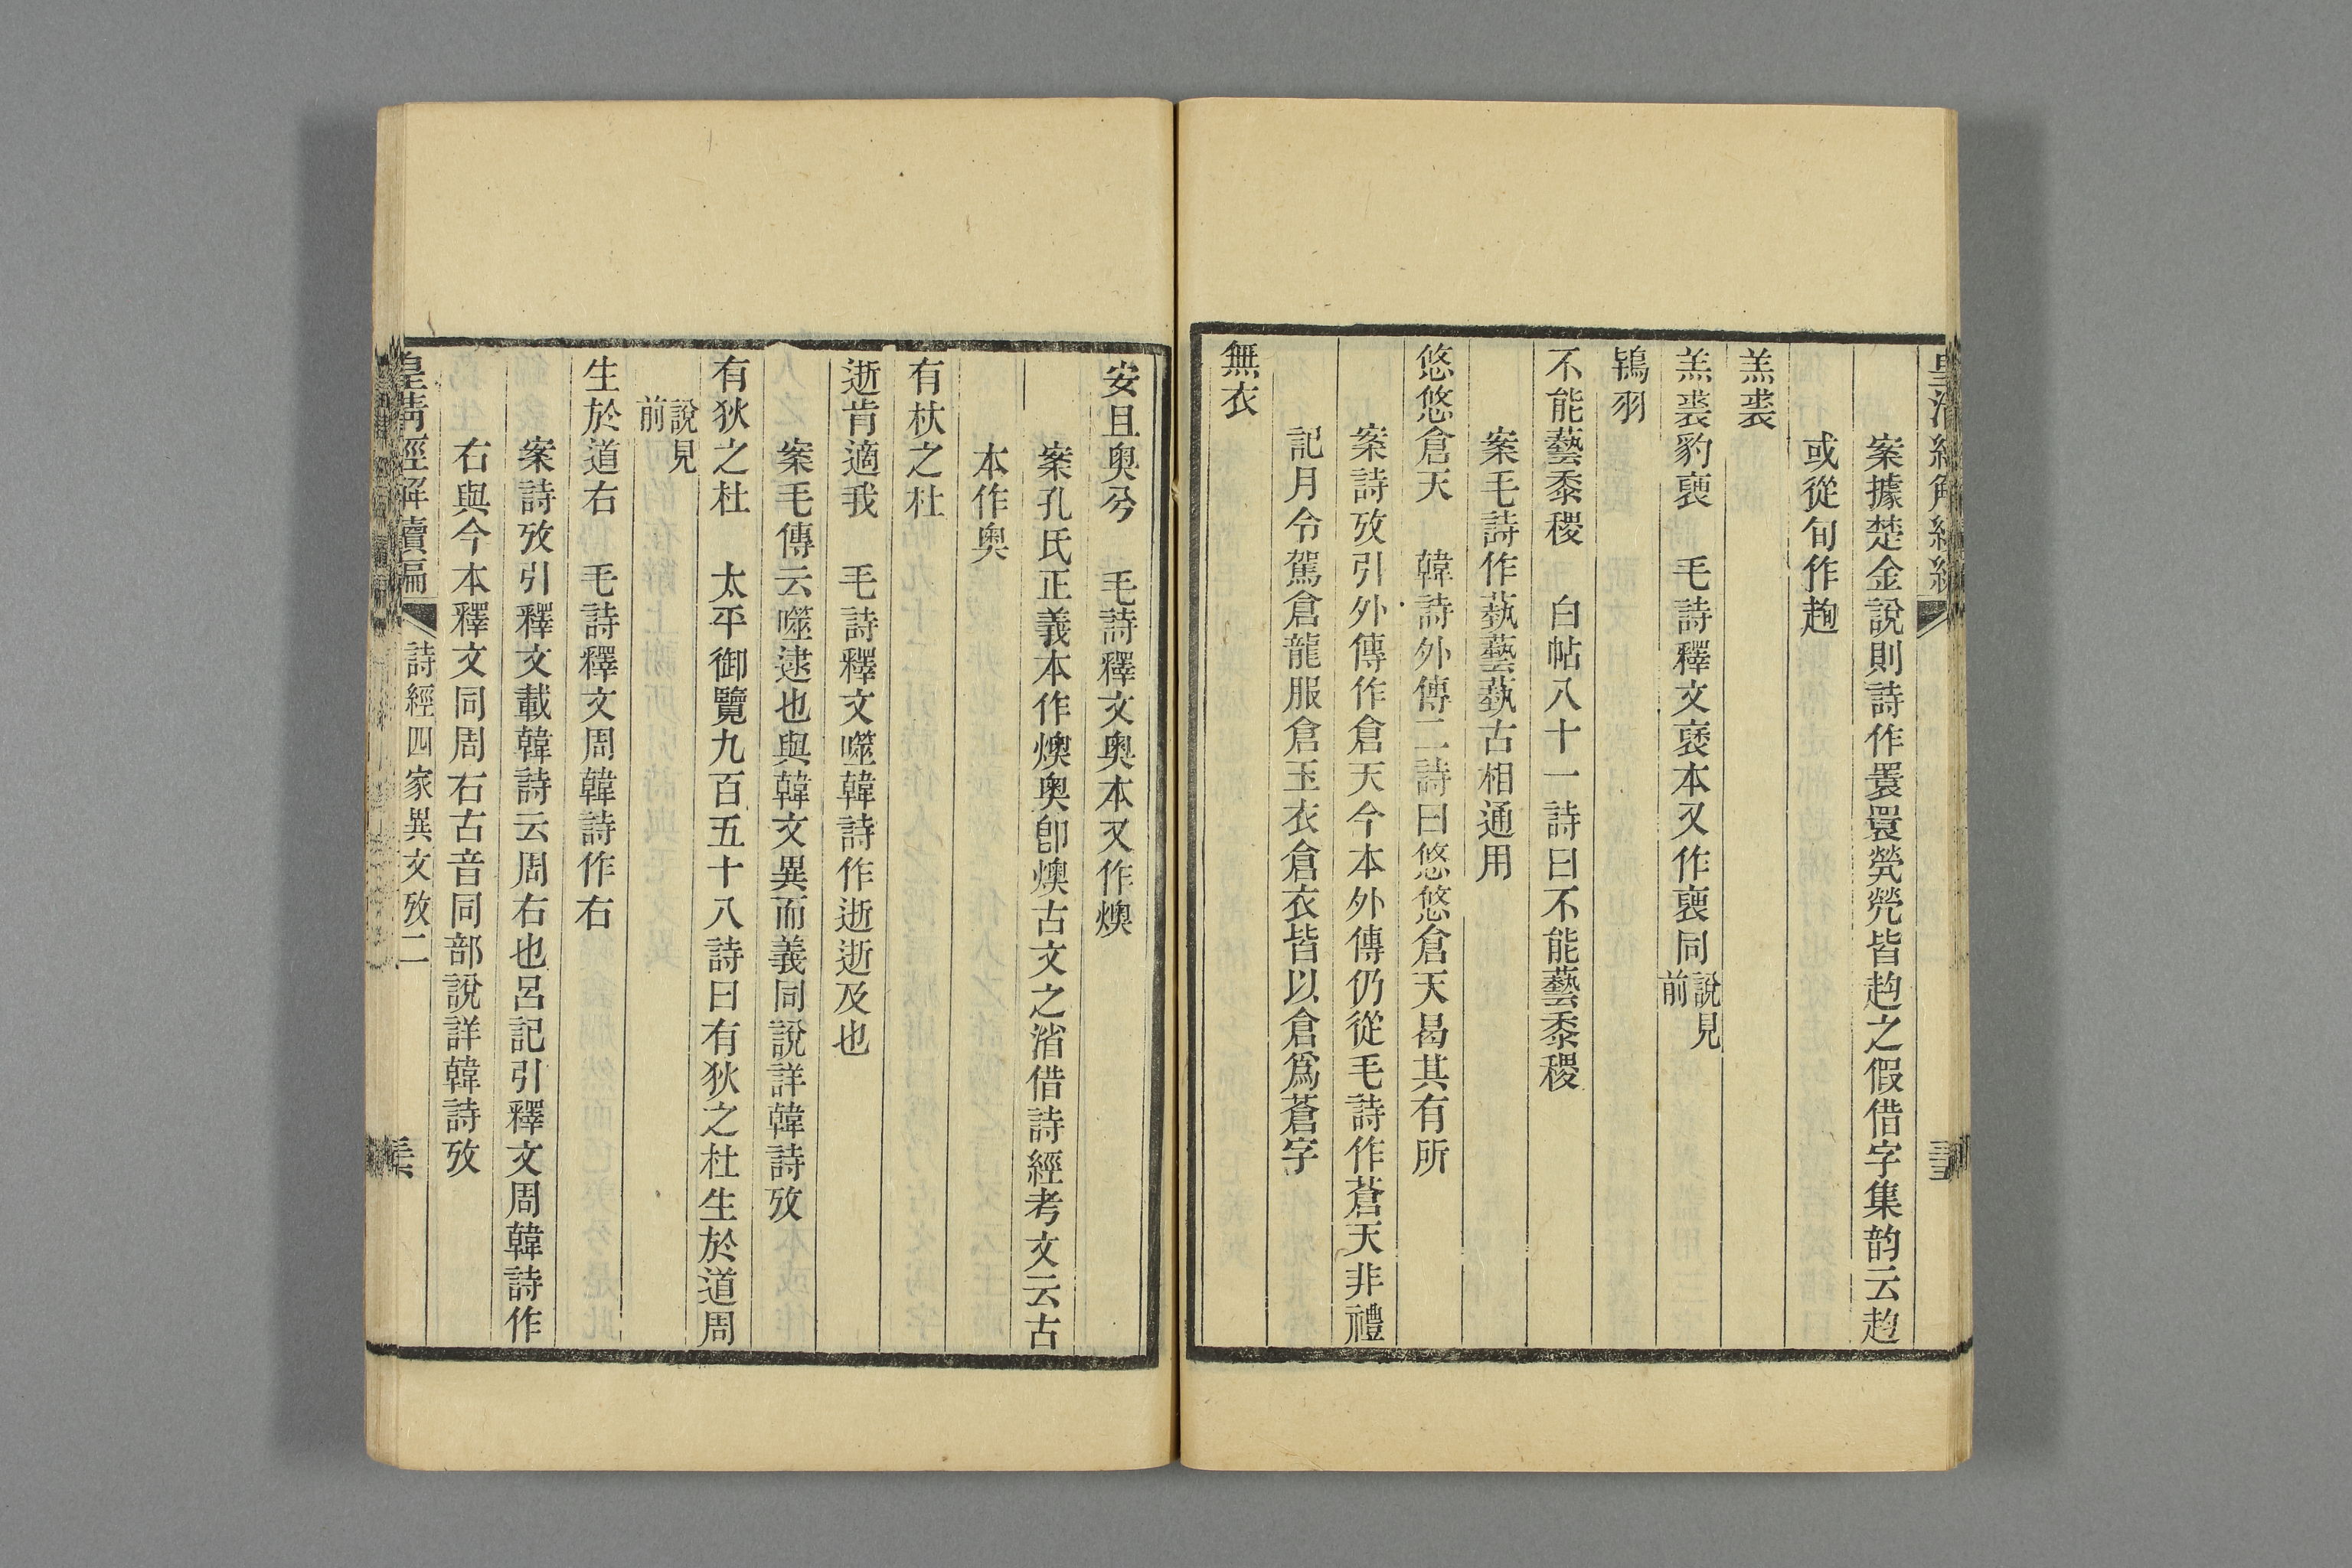 案據楚金說則詩作睘瞏煢焭皆趜之假借字集韵云趜
或從旬作趜
羔裘
羔裘豹褎　毛詩釋文褎本又作褏同說見前
鴇羽
不能藝黍稷　白帖八十一詩曰不能藝黍稷
案毛詩作蓺藝蓺古相通用
悠悠倉天　韓詩外傳二詩曰悠悠倉天曷其有所
案詩攷引外傳作倉天今本外傳仍從毛詩作蒼天非禮
記月令駕倉龍服倉玉衣倉衣皆以倉爲蒼字
無衣
安且奥兮　毛詩釋文奥本又作燠
案孔氏正義本作燠奥卽燠古文之渻借詩經考文云古
本作奥
有杕之杜
逝肯適我　毛詩釋文噬韓詩作逝逝及也
案毛傳云噬逮也與韓文異而義同說詳韓詩攷
有狄之杜　太平御覽九百五十八詩曰有狄之杜生於道周
說見前
生於道右　毛詩釋文周韓詩作右
案詩攷引釋文載韓詩云周右也呂記引釋文周韓詩作
右與今本釋文同周右古音同部說詳韓詩攷
皇清經解續編　詩經四家異文攷二